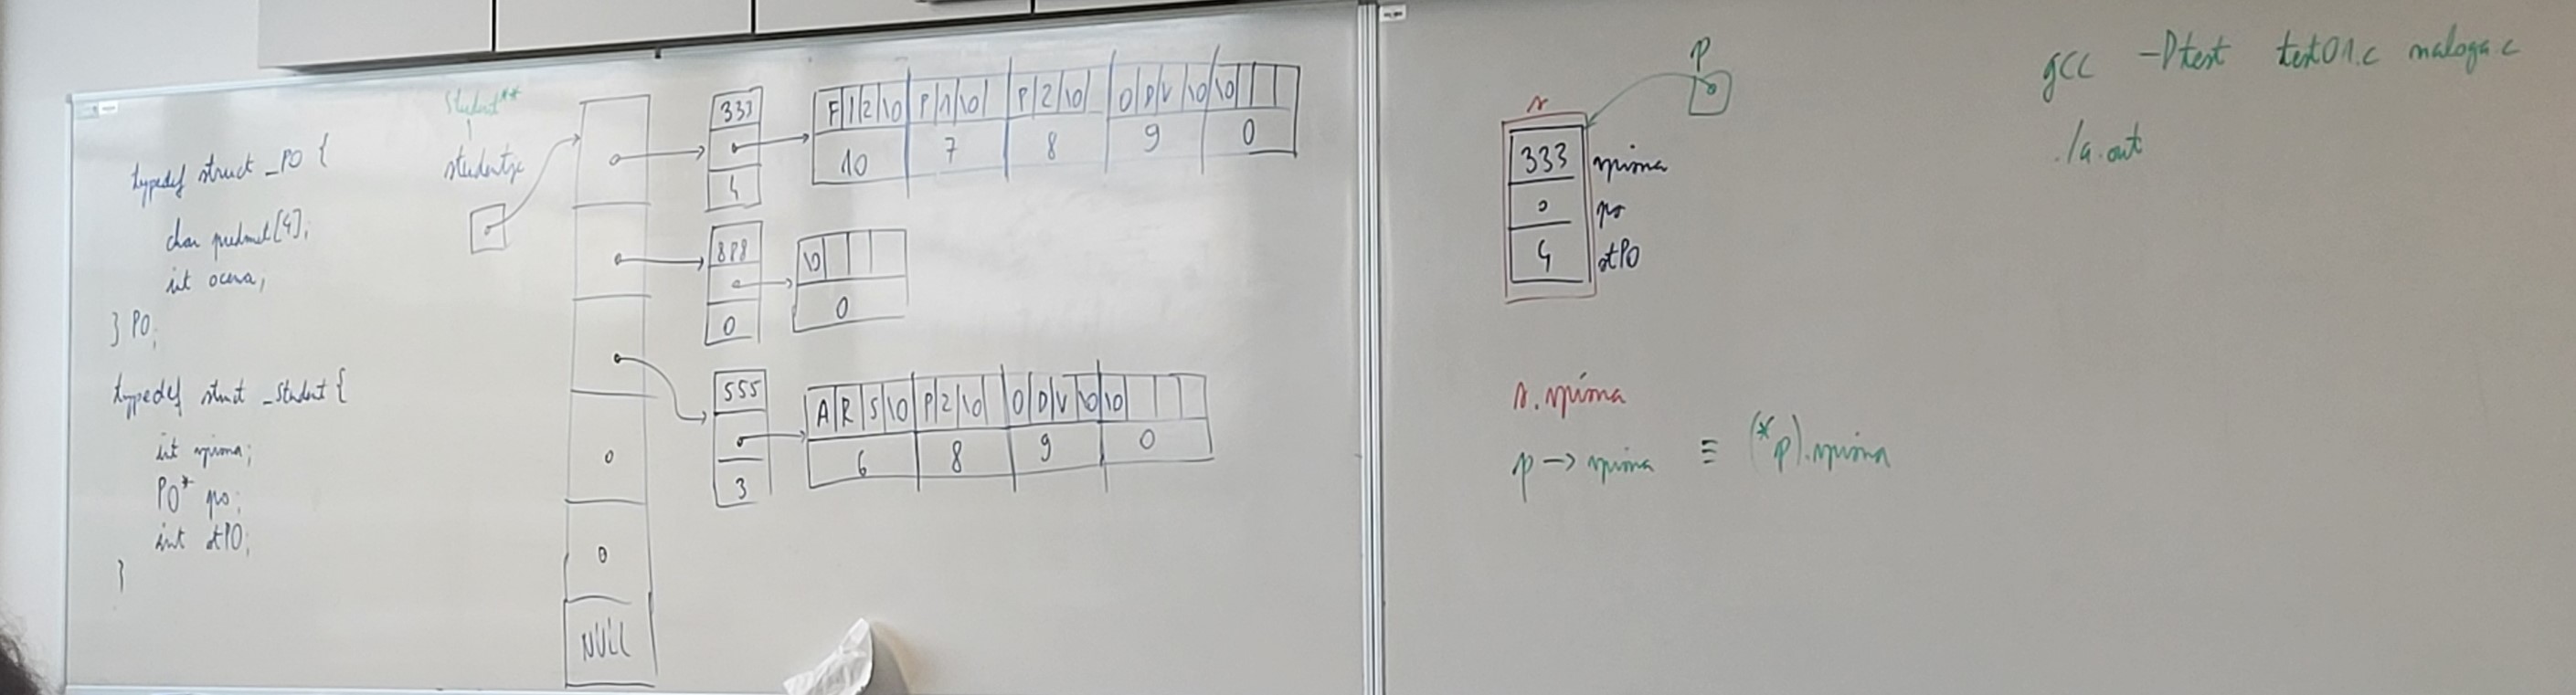 typedef struct _PO {
char predmet[4];
int ocena;
} PO;
typedef struct _Student {
int vpisna;
PO* po;
int stPO;
}
Student**
studentje
NULL
333
4
F 1 2 \0 P 1 \0 P 2 \0 O P V \0 \0
10 7 8 9 0
888
0
\0
0
555
3
A R S \0 P 2 \0 O P V \0 \0
6 8 9 0
p
s
333 vpisna
po
4 stPO
s.vpisna
p -> vpisna ≡ (*p).vpisna
gcc -Dtest test01.c naloga.c
./a.out